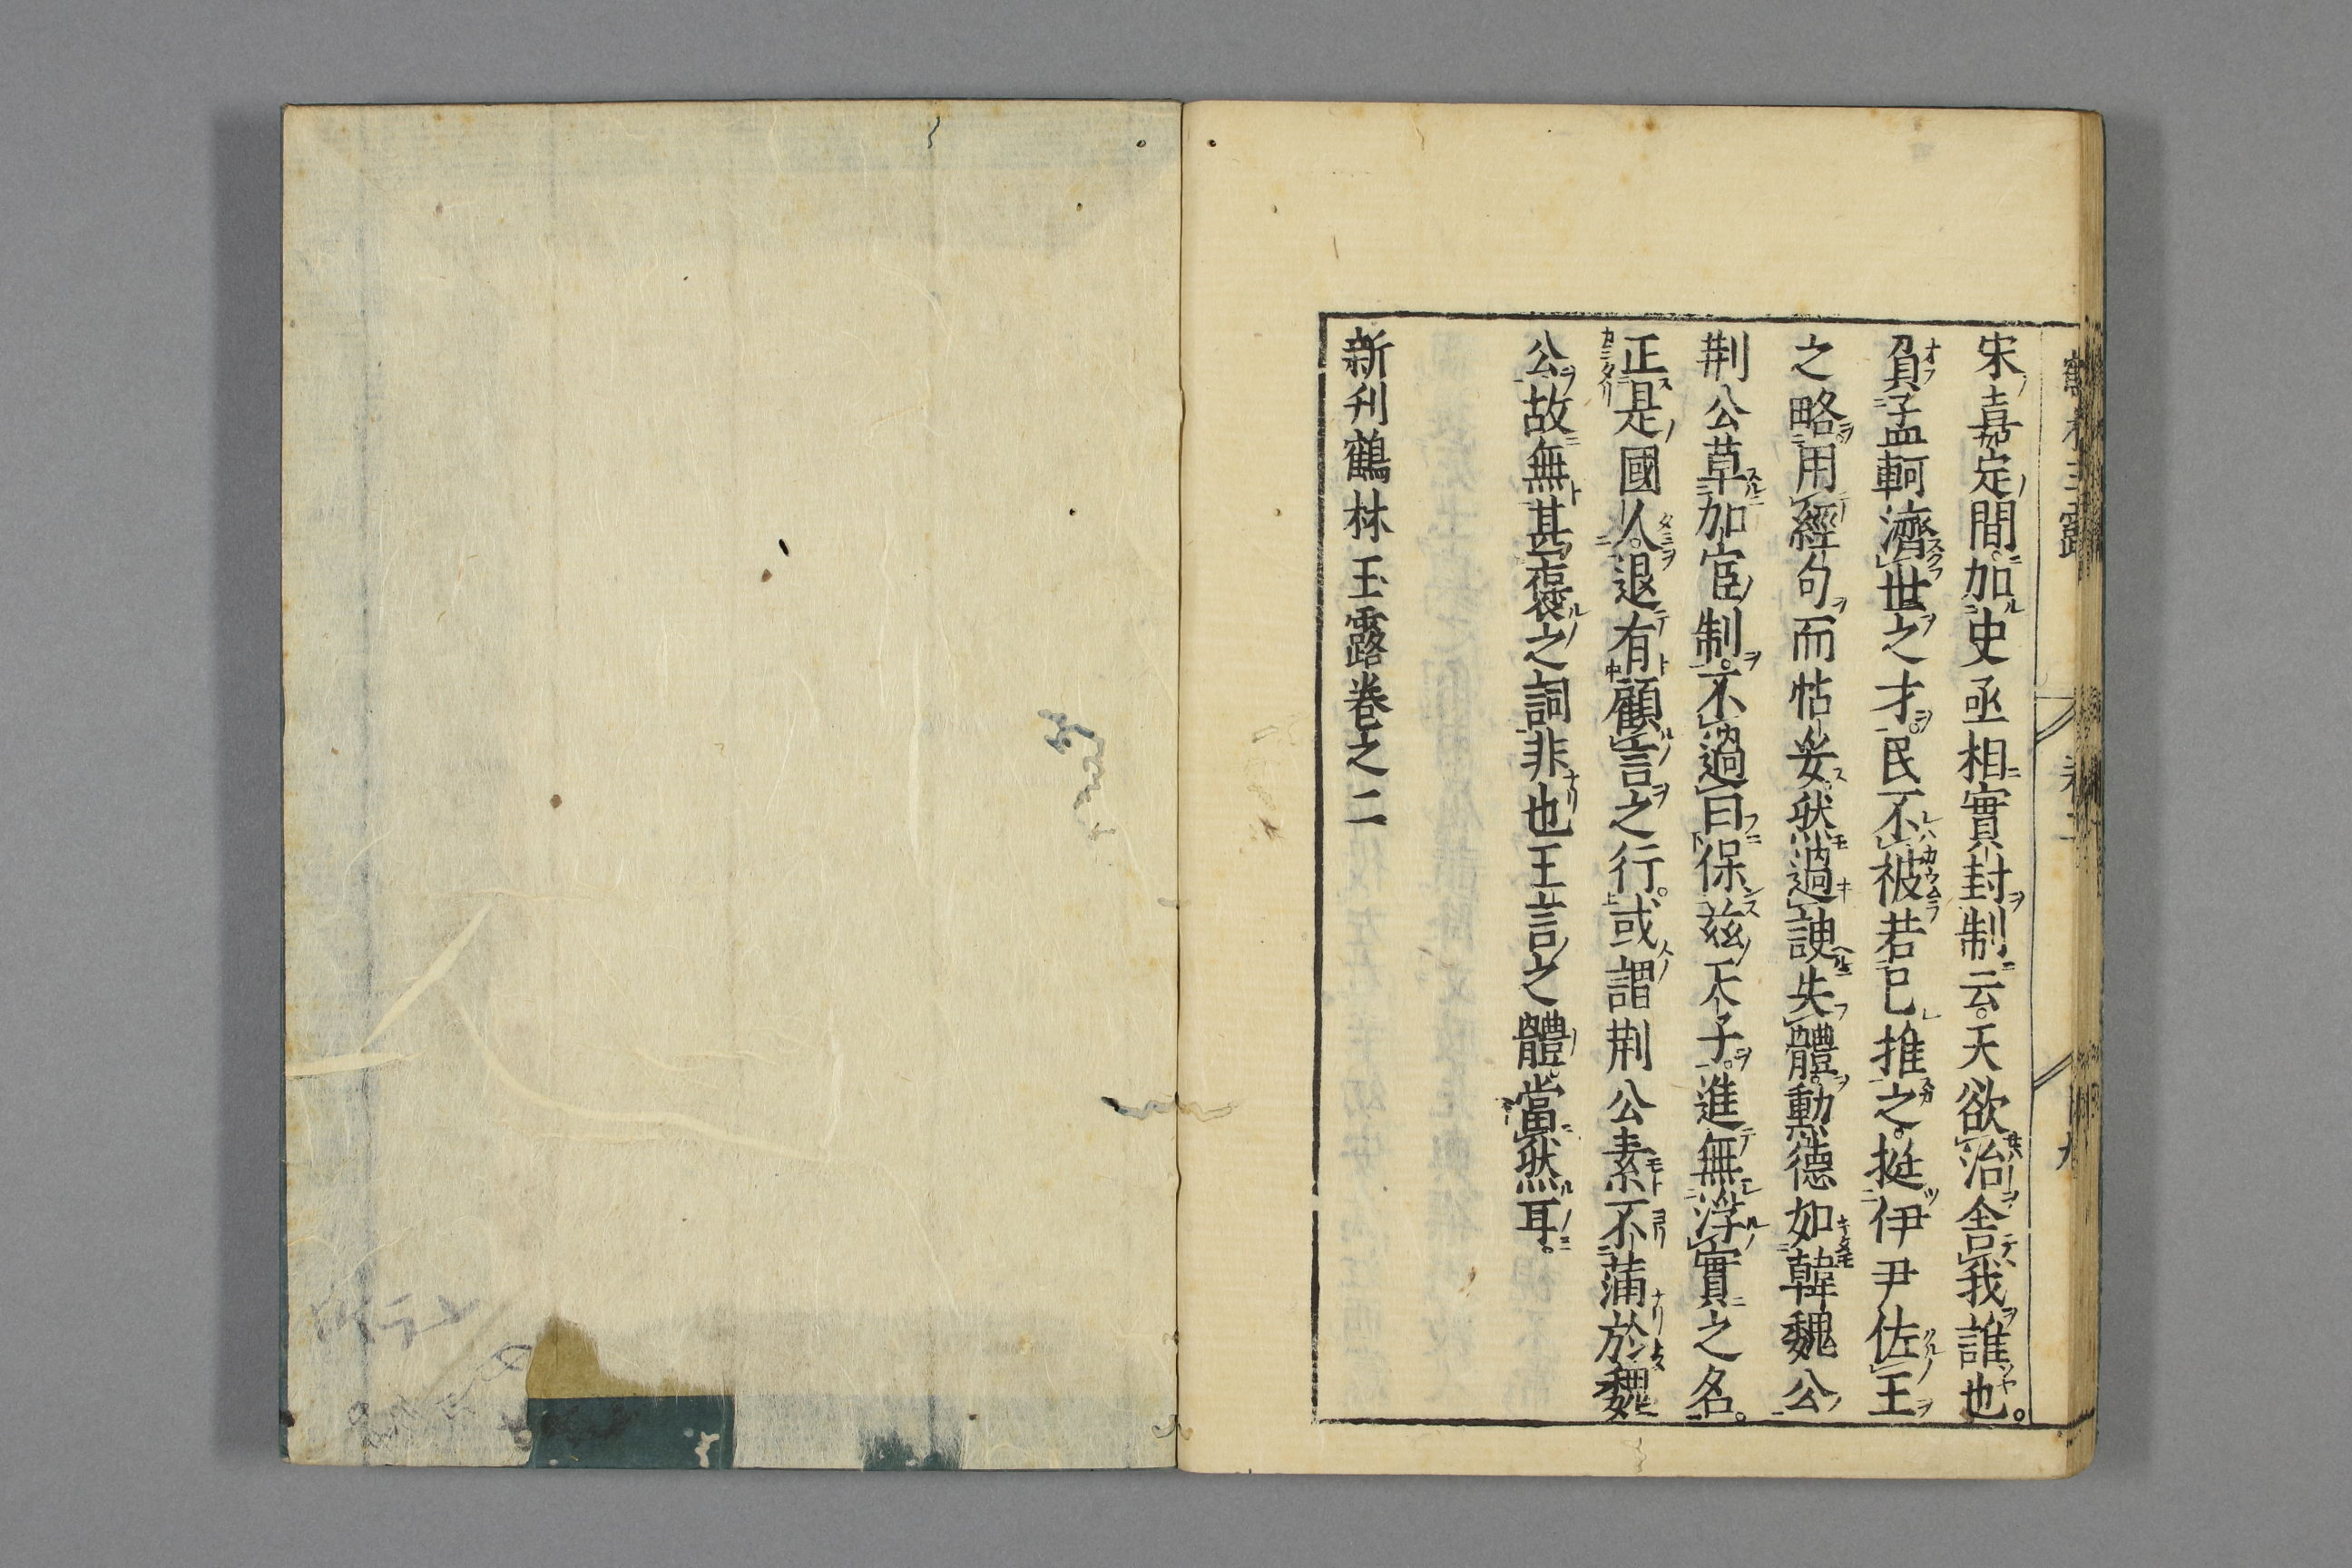 宋嘉定間加史丞相實封制云天欲治舍我誰也
負孟軻濟世之才民不被若已推之挺伊尹佐王
之略用經句而怗妥然過諛失體勳德如韓魏公
荆公草加宦制不過曰保茲天子進無浮實之名
正是國人退有顧言之行或謂荆公素不蒲於魏
公故無甚褒之詞非也王言之體當然耳
新刋鶴林玉露卷之二